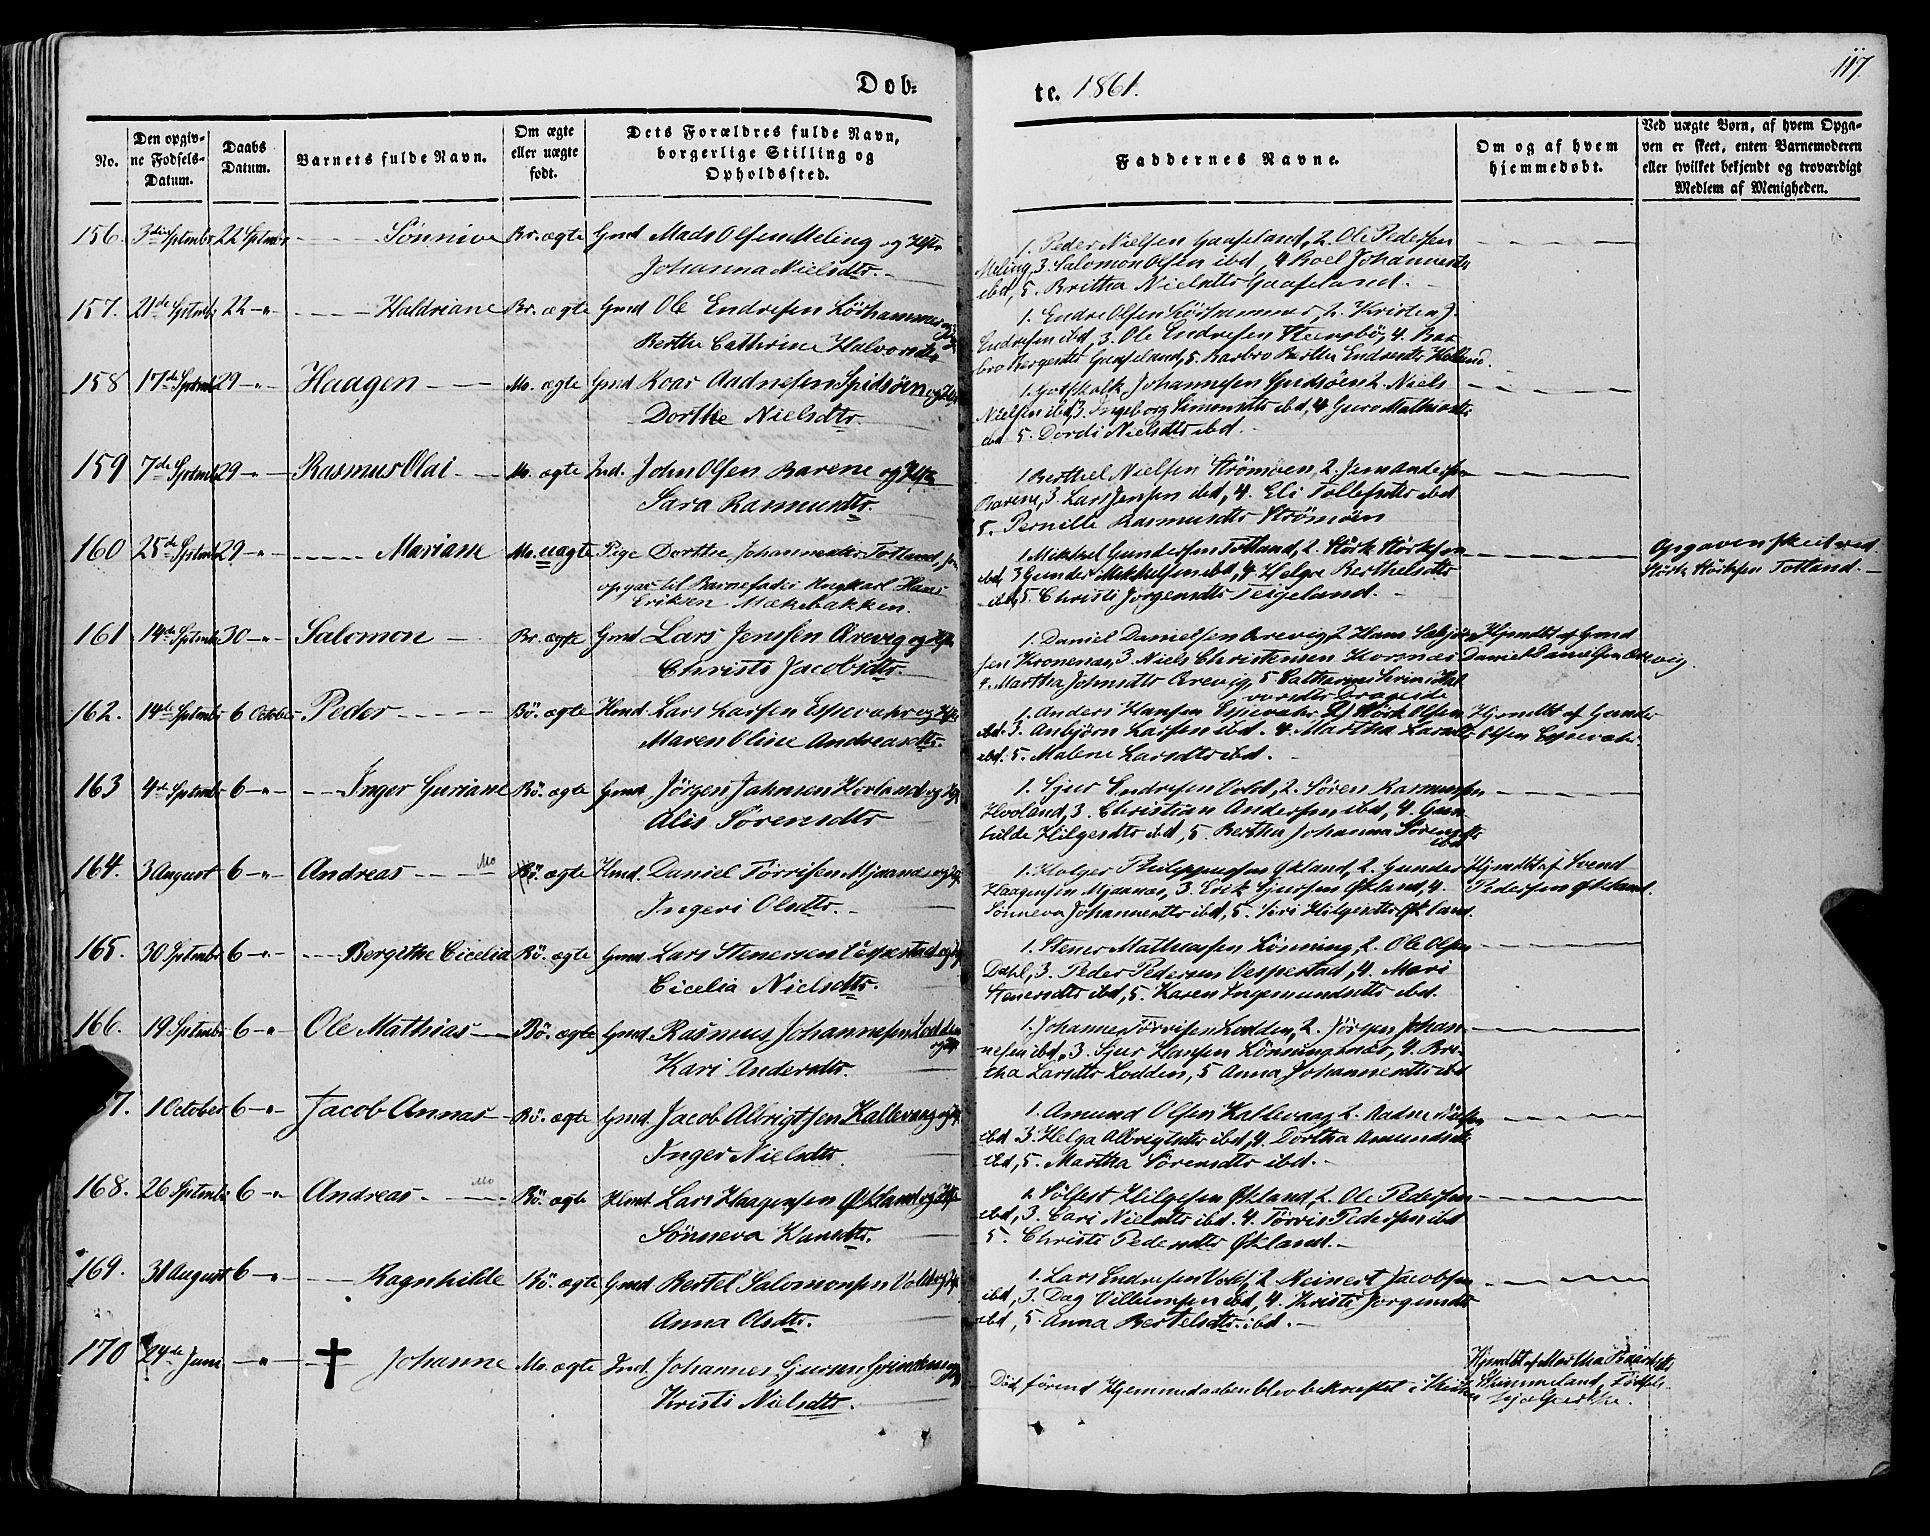 Døb=
te. 1861.
117
No.
Den opgiv-
ne Fødsels-
Datum.
Daabs
Datum.
Barnets fulde Navn.
Om ægte
eller uægte
født.
Dets Forældres fulde Navn,
borgerlige Stilling og
Opholdssted.
Faddernes Navne.
Om og af hvem
hjemmedøbt.
Ved uægte Børn, af hvem Opga-
ven er skeet, enten Barnemoderen
eller hvilket bekjendt og troværdigt
Medlem af Menigheden.
156. 3die Septembr 22 Septmbr Sønniva Br. ægte Gmd Mads Olsen Meling og Hst
Johanna Nielsdtr.
1. Peder Nielsen Gaaseland, 2. Ole Pedersen
Meling, 3. Salomon Olsen ibd, 4 Roel Johannesdtr
ibd, 5. Britha Nielsdtr Gaaseland.
157. 21de Septmbr 22 Haldriane Br. ægte Gmd Ole Endresen
Berthe Cathrine Halvorsdtr
1. Endre Olsen 2. Kristen
Endresen ibd, 3. Ole Endresen Steensbö, 4. Bar-
bro Gaaseland, 5. Barbro Bertha Endresdtr
158 17de Septmbr 29 Haagen Mo. ægte Gmd Roar Aadnesen Spidsöen og Hst
Dorthe Nielsdtr.
1. Godskalk Johannesen Spidsöen 2. Niels
Nielsen ibd, 3. Ingeborg Simonsdtr ibd, 4 Guro Mathiasdtr
ibd. 5. Dordi Nielsdtr ibd.
159 7de Septmbr 29 Rasmus Olai Mo. ægte Ind. John Olsen Barene og Hst
Sara Rasmusdtr.
1 Berthel Nielsen Strömöen, 2. Jens Andersen
Barene, 3. Lars Jensen ibd, 4. Eli Tollefsdtr ibd
5. Pernille Rasmusdtr Strömöen
160 25de Septmbr 29 Mariane Mo. uægte Pige Dorthe Johannesdtr Totland,
opgav til Barnefader Ungkarl Hans
Eriksen Mækebakken.
1. Mikkel Gundersen Totland, 2. Störk Störksen
ibd, 3 Gunder Mikkelsen ibd, 4 Helga Berthelsdtr
ibd, 5. Christi Jørgensdtr Teigeland.
Opgaven skeet ved
Störk Störksen Totland.
161 14de Septmbr 30 Salomon Br. ægte Gmd. Lars Jensen Ærevig og Hst
Christi Jacobsdtr.
1. Daniel Danielsen Ærevig, 2 Hans
sen Kronenæs, 3. Niels Christensen
4. Martha Johnsdtr Ærevig 5 Cathrine
Hjmdbt af Gmd
Daniel Danielsen Ærevig.
162. 14de Septmbr 6 October Peder Bö. ægte Hmd. Lars Larsen Espevær og Hst
Maren Oline Andreasdtr.
1. Anders Hansen Espevær 2) Störk Olsen
ibd. 3. Anbjørn Larsen ibd. 4. Martha Larsdtr
ibd. 5. Malene Larsdtr ibd.
Hjmdbt af Gunder
Olsen Espevær.
163 4de Septmbr 6 Inger Guriane Bö. ægte Gmd. Jörgen Johnsen Hovland og Hst
Alis Sørensdtr
1. Sjur Endresen Vold, 2. Sören Rasmussen
Hovland, 3. Christian Andersen ibd, 4. Gun-
hilde Helgesdtr ibd, 5. Bertha Johanna Sørensdtr
ibd
164. 3 August 6 Andreas Mo Bö. ægte Hmd. Daniel Törrisen Mjaanæs og Hst
Ingeri Olsdtr.
1. Holger Philippusen Økland, 2. Gunder
Haagensen Mjaanæs, 3. Erik Sjursen Økland, 4.
Sönneva Johannesdtr ibd, 5. Siri Helgesdtr Økland.
Hjmdbt af Svend
Pedersen Økland.
165. 30 Septmbr 6 Bergithe Cicelia Bö. ægte Gmd. Lars Stenersen Vespestad og Hst
Cicelia Nielsdtr.
1. Stener Mathiassen Lönning, 2. Ole Olsen
Dahl, 3. Peder Pedersen Vespestad, 4. Mari
Stenersdtr ibd, 5. Karen Ingemundsdtr ibd.
166. 19 Septmbr 6 Ole Mathias Bö. ægte Gmd. Rasmus Johannesen Lodden og Hst
Kari Andersdtr.
1. Johannes Törrisen Lodden, 2. Jörgen Johan-
nesen ibd, 3. Sjur Hansen 4. Bri-
tha Larsdtr Lodden, 5 Anna Johannesdtr ibd
67. 1 October 6 Jacob Annas Bö. ægte Gmd. Jacob Albrigtsen Kallevaag og Hst
Inger Nielsdtr.
1. Amund Olsen Kallevaag 2. Aadne
ibd 3. Helga Albrigtsdtr ibd, 4. Dortha Amundsdtr
ibd, 5. Martha Sørensdtr ibd.
168. 26 Septmbr 6 Andreas Mo Bö. ægte Hmd. Lars Haagensen Økland og Hst
Sönneva Hansdtr.
1. Sölfest Helgesen Økland, 2. Ole Pedersen
ibd, 3. Cari Nielsdtr ibd. 4. Törris Pedersen ibd
5. Christi Pedersdtr Økland.
169. 31 August 6 Ragnhilde Bö. ægte Gmd Bertel Salomonsen Vold og Hst
Anna Olsdtr.
1. Lars Endresen Vold, 2. Reinert Jacobsen
ibd, 3. Dag Villumsen ibd, 4. Kristi Jørgensdtr
ibd, 5. Anna Bertelsdtr ibd.
170 24de Juni Johanne Mo. ægte Ind. Johannes Sjursen
Kristi Nielsdtr.
Død, førend Hjemmedaaben blev bekræftet i Kirken
Hjmdbt af Martha